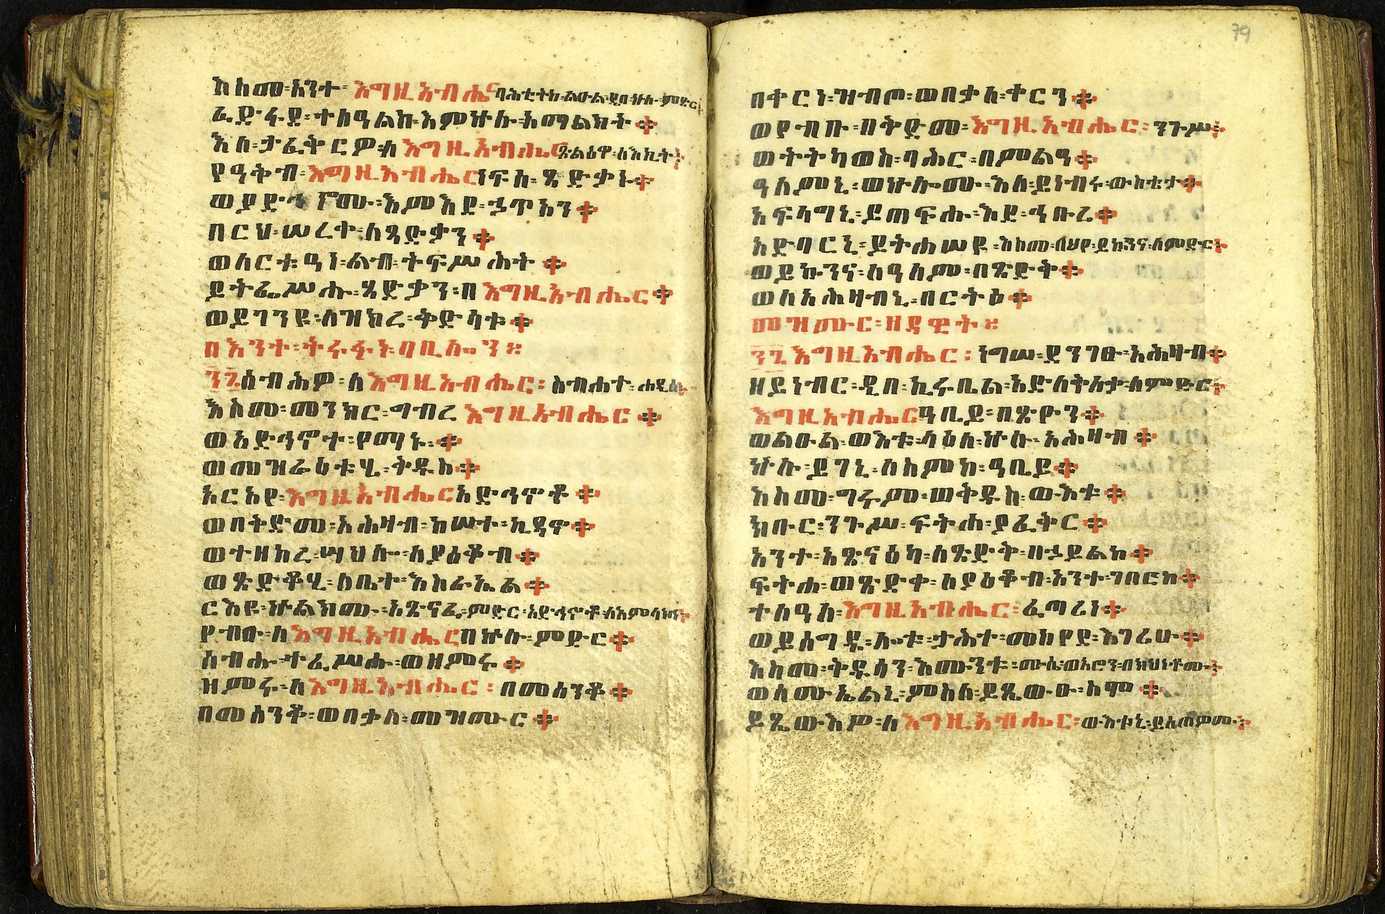 እስመ፡አንተ፡እግዚአብሔር ባሕቲትከ፡ልዑል፡ዲበ፡ኵሉ፡ምድር፤
ፈድፋደ፡ተለዓልከ፡እምኵሉ፡አማልክት።
እለ፡ታፈቅርዎ፡ለእግዚአብሔር ጽልዕዋ፡ለእኪት፤
የዓቅብ፡እግዚአብሔር ነፍሰ፡ጻድቃኑ።
ወያድኅኖሙ፡እምእደ፡ኃጥአን።
በርህ፡ሠረቀ፡ለጻድቃን።
ወለርቱዓነ፡ልብ፡ትፍሥሕት።
ይትፌሥሑ፡ጻድቃን፡በእግዚአብሔር።
ወይገንዩ፡ለዝክረ፡ቅድሳቱ።
በእንተ፡ትሩፋኑ፡ባቢሎን፨
፺፯ ሰብሕዎ፡ለእግዚአብሔር፡ስብሐተ፡ሐዲሰ፤
እስመ፡መንክር፡ግብረ እግዚአብሔር።
ወአድኅኖተ፡የማኑ።
ወመዝራዕቱሂ፡ቅዱስ።
አርአየ፡እግዚአብሔር አድኅኖቶ።
ወበቅድመ፡አሕዛብ፡ከሠተ፡ኪዳኖ።
ወተዘከረ፡ሣህሎ፡ለያዕቆብ።
ወጽድቆሂ፡ለቤተ፡እስራኤል።
ርእዩ፡ኵልክሙ፡አጽናፈ፡ምድር፡አድኅኖቶ፡ለአምላክነ፤
የብቡ፡ለእግዚአብሔር በኵሉ፡ምድር።
ሰብሑ፡ተፈሥሑ፡ወዘምሩ።
ዘምሩ፡ለእግዚአብሔር፡በመሰንቆ።
በመሰንቆ፡ወበቃለ፡መዝሙር።
79
በቀርነ፡ዝብጦ፡ወበቃለ፡ቀርን።
ወየብቡ፡በቅድመ፡እግዚአብሔር፡ንጉሥ፤
ወትትሀወክ፡ባሕር፡በምልዓ።
ዓለምኒ፡ወኵሎሙ፡እለ፡ይነብሩ፡ውስቴታ።
አፍላግኒ፡ይጠፍሑ፡እደ፡ኅቡረ።
አድባርኒ፡ይትሐሠዩ፡እስመ፡ለሀየ፡ይኰንና፡ለምድር፤
ወይኴንና፡ለዓለም፡በጽድቅ።
ወለአሕዛብኒ፡በርትዕ።
መዝሙር፡ዘዳዊት፨
፺፰ እግዚአብሔር፡ነግሠ፡ይንገፁ፡አሕዛብ።
ዘይነብር፡ዲበ፡ኪሩቤል፡አድለቅለቃ፡ለምድር፤
እግዚአብሔር ዓቢይ፡በጽዮን።
ወልዑል፡ውእቱ፡ላዕለ፡ኵሉ፡አሕዛብ።
ኵሉ፡ይገኒ፡ለስምከ፡ዓቢይ።
እስመ፡ግሩም፡ወቅዱስ፡ውእቱ።
ክቡር፡ንጉሥ፡ፍትሐ፡ያፈቅር።
አንተ፡አጽናዕካ፡ለጽድቅ፡በኃይልከ።
ፍትሐ፡ወጽድቀ፡ለያዕቆብ፡አንተ፡ገበርከ።
ተለዓለ፡እግዚአብሔር፡ፈጣሪነ።
ወይሰግዱ፡ሎቱ፡ታሕተ፡መከየደ፡እገሪሁ።
እስመ፡ቅዱሳን፡እሙንቱ፡ሙሴ፡ወአሮን፡በክህነቶሙ፤
ወሳሙኤልኒ፡ምስለ፡ይጼውዑ፡ስሞ።
ይጼውእዎ፡ለእግዚአብሔር፡ውእቱኒ፡ይሰጠዎሙ፤